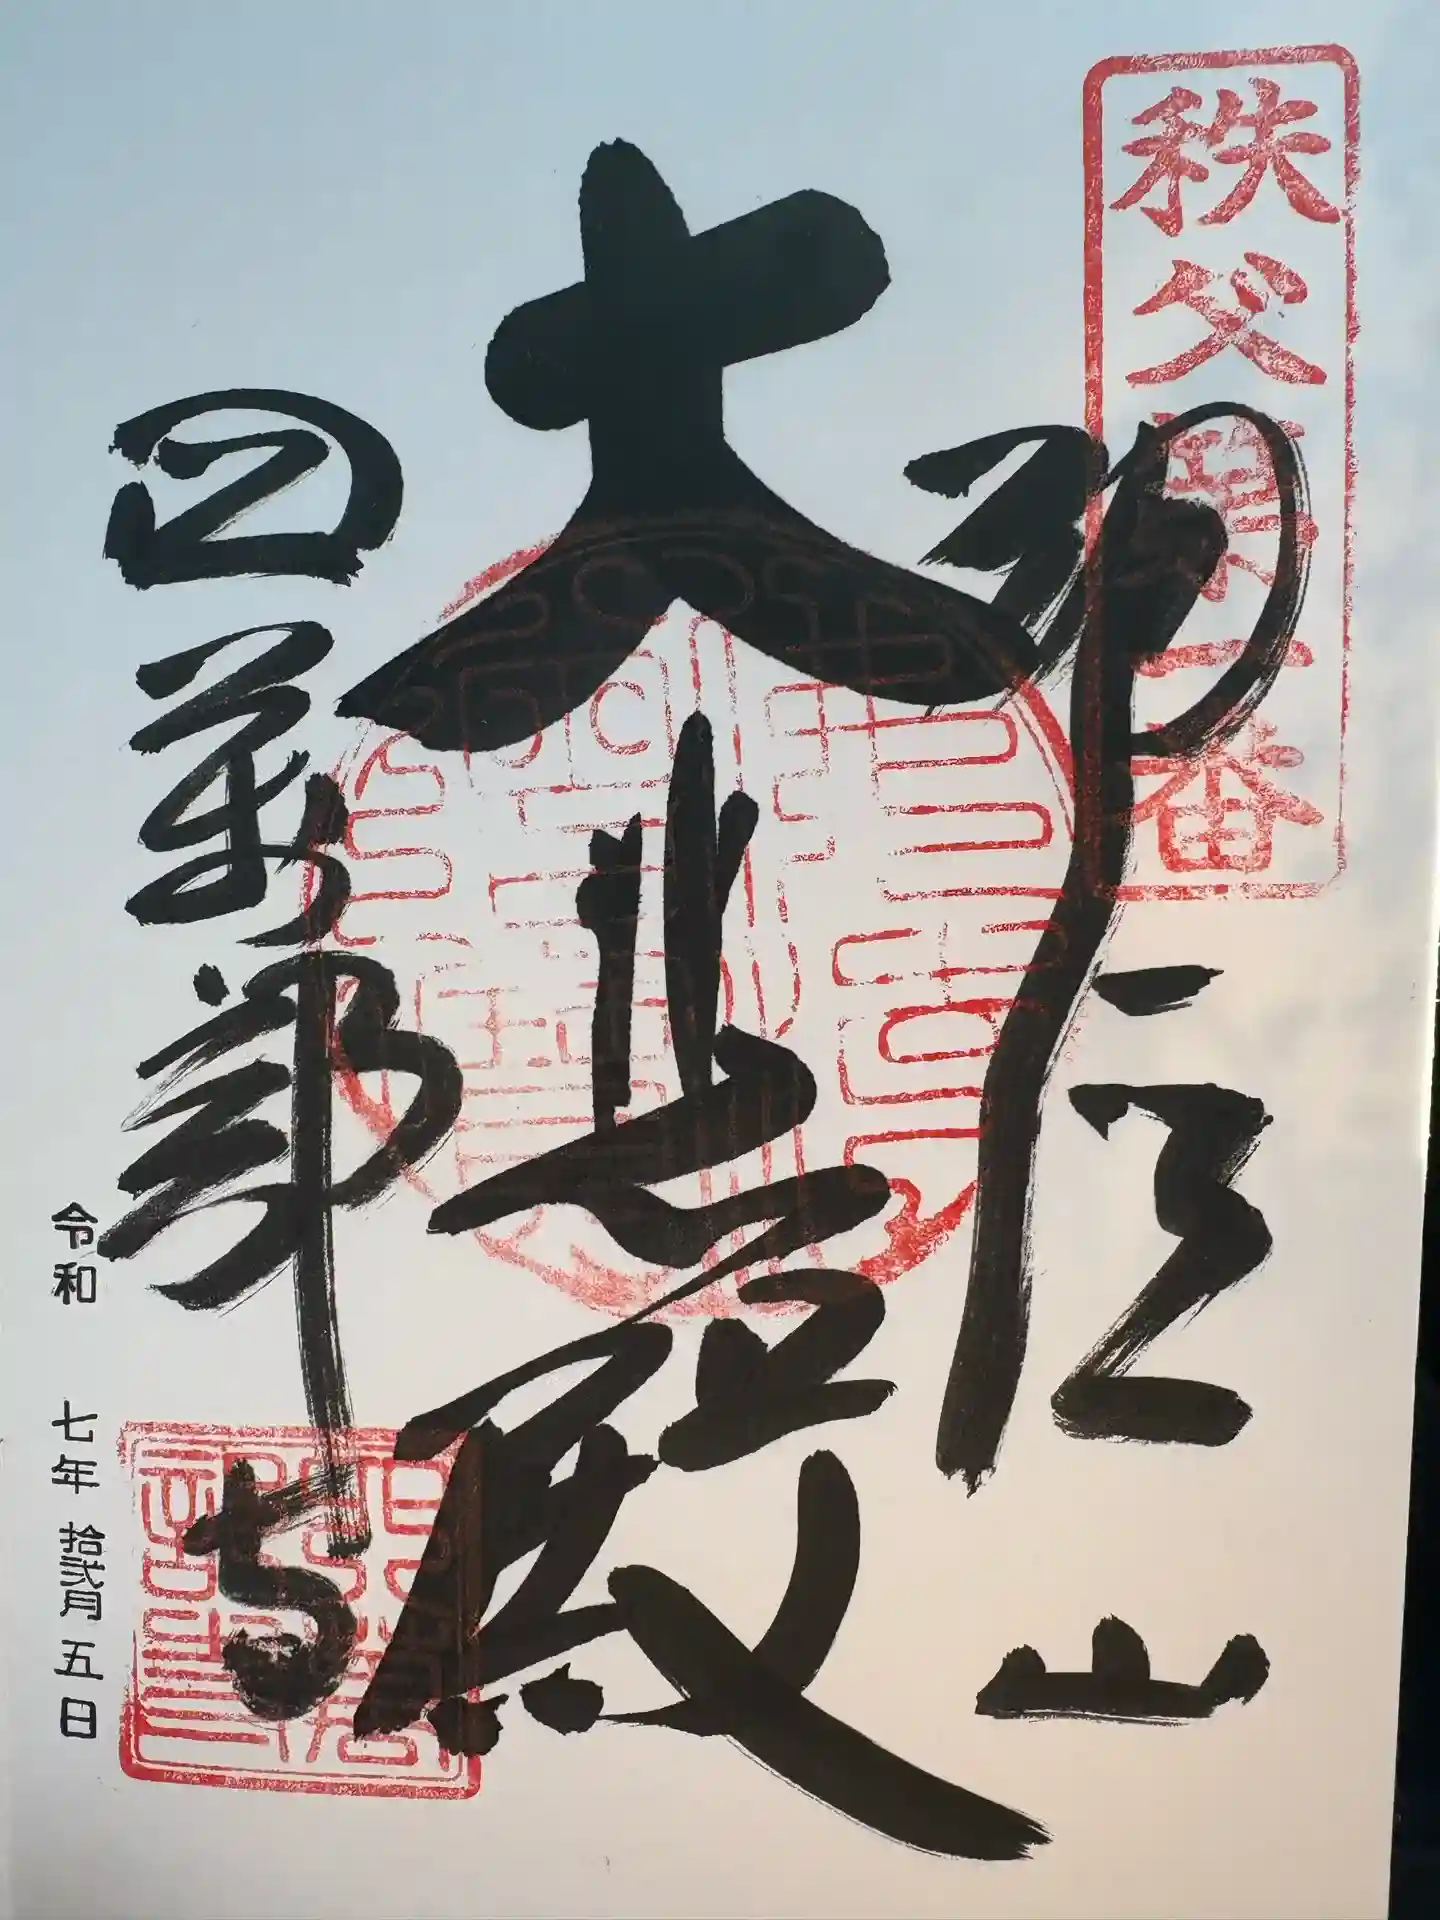 秩父第一番
誦経山
大悲殿
四萬部寺
令和 七年 拾弐月 五日